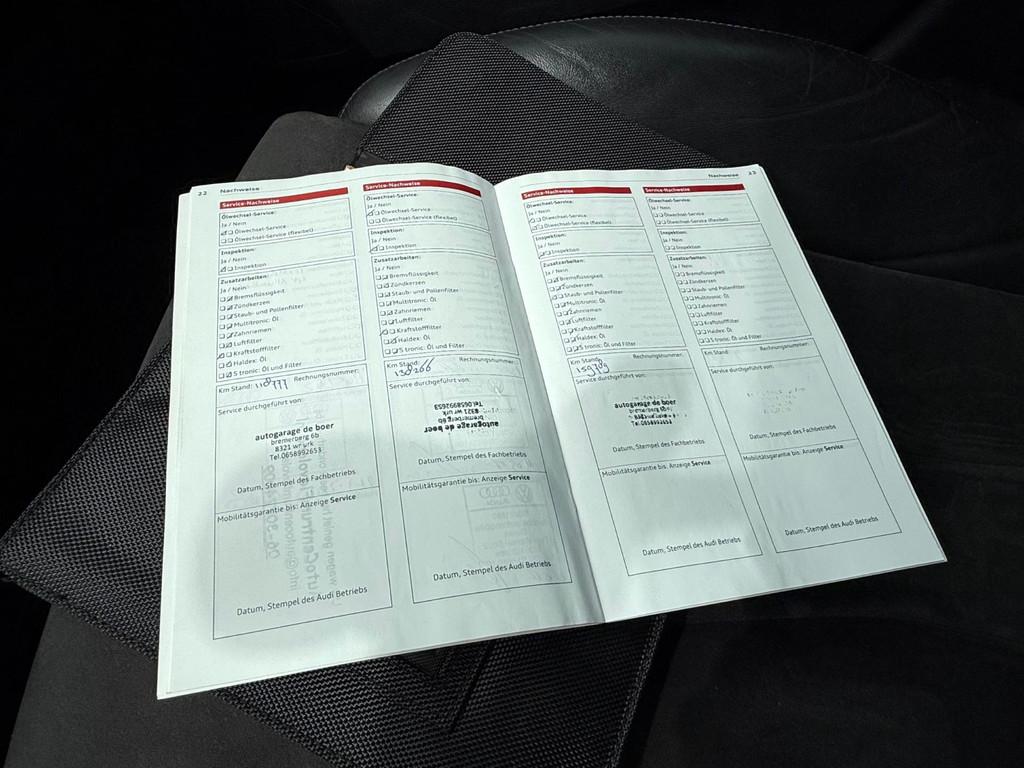 22 Nachweise
Service-Nachweise
Ölwechsel-Service:
Ja / Nein
Ölwechsel-Service
Ölwechsel-Service (flexibel)
Inspektion:
Ja / Nein
Inspektion
Zusatzarbeiten:
Ja / Nein
Bremsflüssigkeit
Zündkerzen
Staub- und Pollenfilter
Multitronic: Öl
Zahnriemen
Luftfilter
Kraftstofffilter
Haldex: Öl
S tronic: Öl und Filter
Km Stand: Rechnungsnummer:
Service durchgeführt von:
autogarage de boer
bremerberg 6b
8321 wr urk
Tel.0658992653
Datum, Stempel des Fachbetriebs
Mobilitätsgarantie bis: Anzeige Service
Datum, Stempel des Audi Betriebs
Service-Nachweise
Ölwechsel-Service:
Ja / Nein
Ölwechsel-Service
Ölwechsel-Service (flexibel)
Inspektion:
Ja / Nein
Inspektion
Zusatzarbeiten:
Ja / Nein
Bremsflüssigkeit
Zündkerzen
Staub- und Pollenfilter
Multitronic: Öl
Zahnriemen
Luftfilter
Kraftstofffilter
Haldex: Öl
S tronic: Öl und Filter
Km Stand: Rechnungsnummer:
130266
Service durchgeführt von:
autogarage de boer
bremerberg 6b
8321 wr urk
Tel.0658992653
Datum, Stempel des Fachbetriebs
Mobilitätsgarantie bis: Anzeige Service
Datum, Stempel des Audi Betriebs
Nachweise 23
Service-Nachweise
Ölwechsel-Service:
Ja / Nein
Ölwechsel-Service
Ölwechsel-Service (flexibel)
Inspektion:
Ja / Nein
Inspektion
Zusatzarbeiten:
Ja / Nein
Bremsflüssigkeit
Zündkerzen
Staub- und Pollenfilter
Multitronic: Öl
Zahnriemen
Luftfilter
Kraftstofffilter
Haldex: Öl
S tronic: Öl und Filter
Km Stand: Rechnungsnummer:
Service durchgeführt von:
autogarage de boer
bremerberg 6b
Tel.0658992653
Datum, Stempel des Fachbetriebs
Mobilitätsgarantie bis: Anzeige Service
Datum, Stempel des Audi Betriebs
Service-Nachweise
Ölwechsel-Service:
Ja / Nein
Ölwechsel-Service
Ölwechsel-Service (flexibel)
Inspektion:
Ja / Nein
Inspektion
Zusatzarbeiten:
Ja / Nein
Bremsflüssigkeit
Zündkerzen
Staub- und Pollenfilter
Multitronic: Öl
Zahnriemen
Luftfilter
Kraftstofffilter
Haldex: Öl
S tronic: Öl und Filter
Km Stand: Rechnungsnummer:
Service durchgeführt von:
Datum, Stempel des Fachbetriebs
Mobilitätsgarantie bis: Anzeige Service
Datum, Stempel des Audi Betriebs